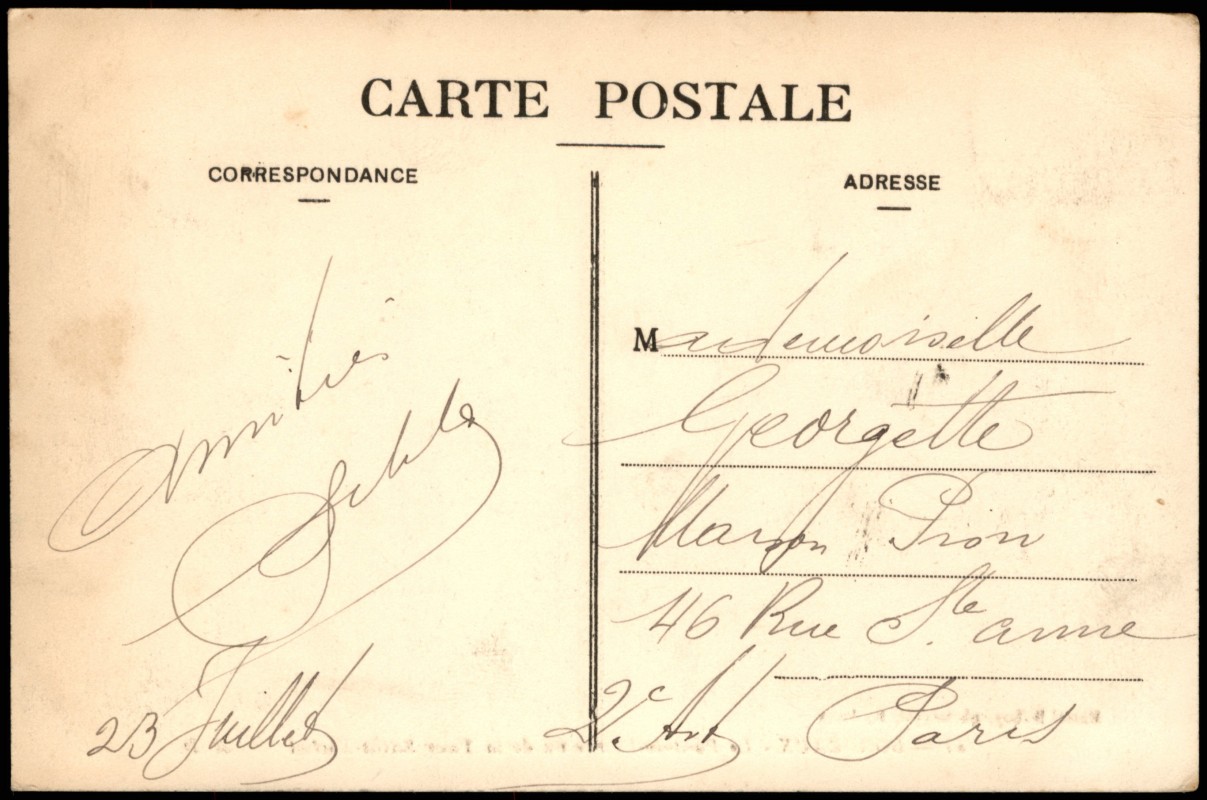 CARTE POSTALE
CORRESPONDANCE
ADRESSE
Amitiés
23 Juillet
Mademoiselle
Georgette
Maison Piron
46 Rue Ste anne
2e Art Paris